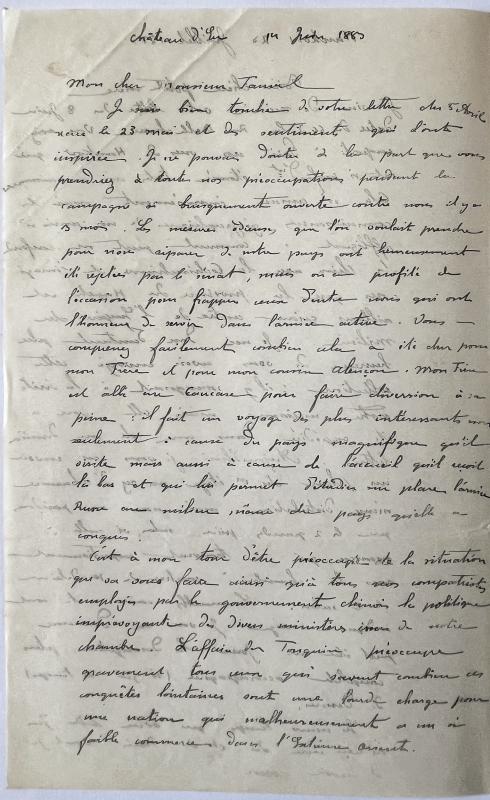 Château d'Eu 14 Juin 1883
Mon cher Monsieur
Je suis bien touché de votre lettre du 5 Avril
reçue le 23 mai et des sentiments qui l'ont
inspirée. Je ne pouvais douter de la part que vous
prendriez à toutes nos préoccupations pendant la
campagne si brusquement ouverte contre nous il y a
5 mois. Les mesures odieuses que l'on voulait prendre
pour nous séparer de notre pays ont heureusement
été rejetées par le sénat, mais on a profité de
l'occasion pour frapper ceux d'entre nous qui ont
l'honneur de servir dans l'armée active. Vous
comprenez facilement combien cela a été cher pour
mon Frère et pour mon cousin Alençon. Mon Frère
est allé au Caucase pour faire diversion à sa
peine : il fait un voyage des plus intéressants non
seulement à cause du pays magnifique qu'il
visite mais aussi à cause de l'accueil qu'il reçoit
là bas et qui lui permet d'étudier sur place l'armée
Russe au milieu même du pays qu'elle a
conquis.
C'est à mon tour d'être préoccupé de la situation
que va vous faire ainsi qu'à tous nos compatriotes
employés par le gouvernement chinois la politique
imprévoyante des divers ministères issus de notre
chambre. L'affaire du Tonquin préoccupe
gravement tous ceux qui savent combien ces
conquêtes lointaines sont une lourde charge pour
une nation qui malheureusement a un si
faible commerce dans l'Extrême Orient.